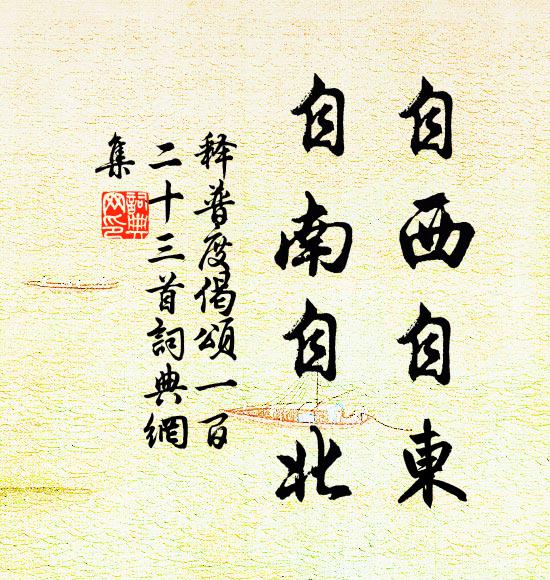 自西自東
自南自北
释普度偈頌一百
二十三首詞典網
集
詞典
网印